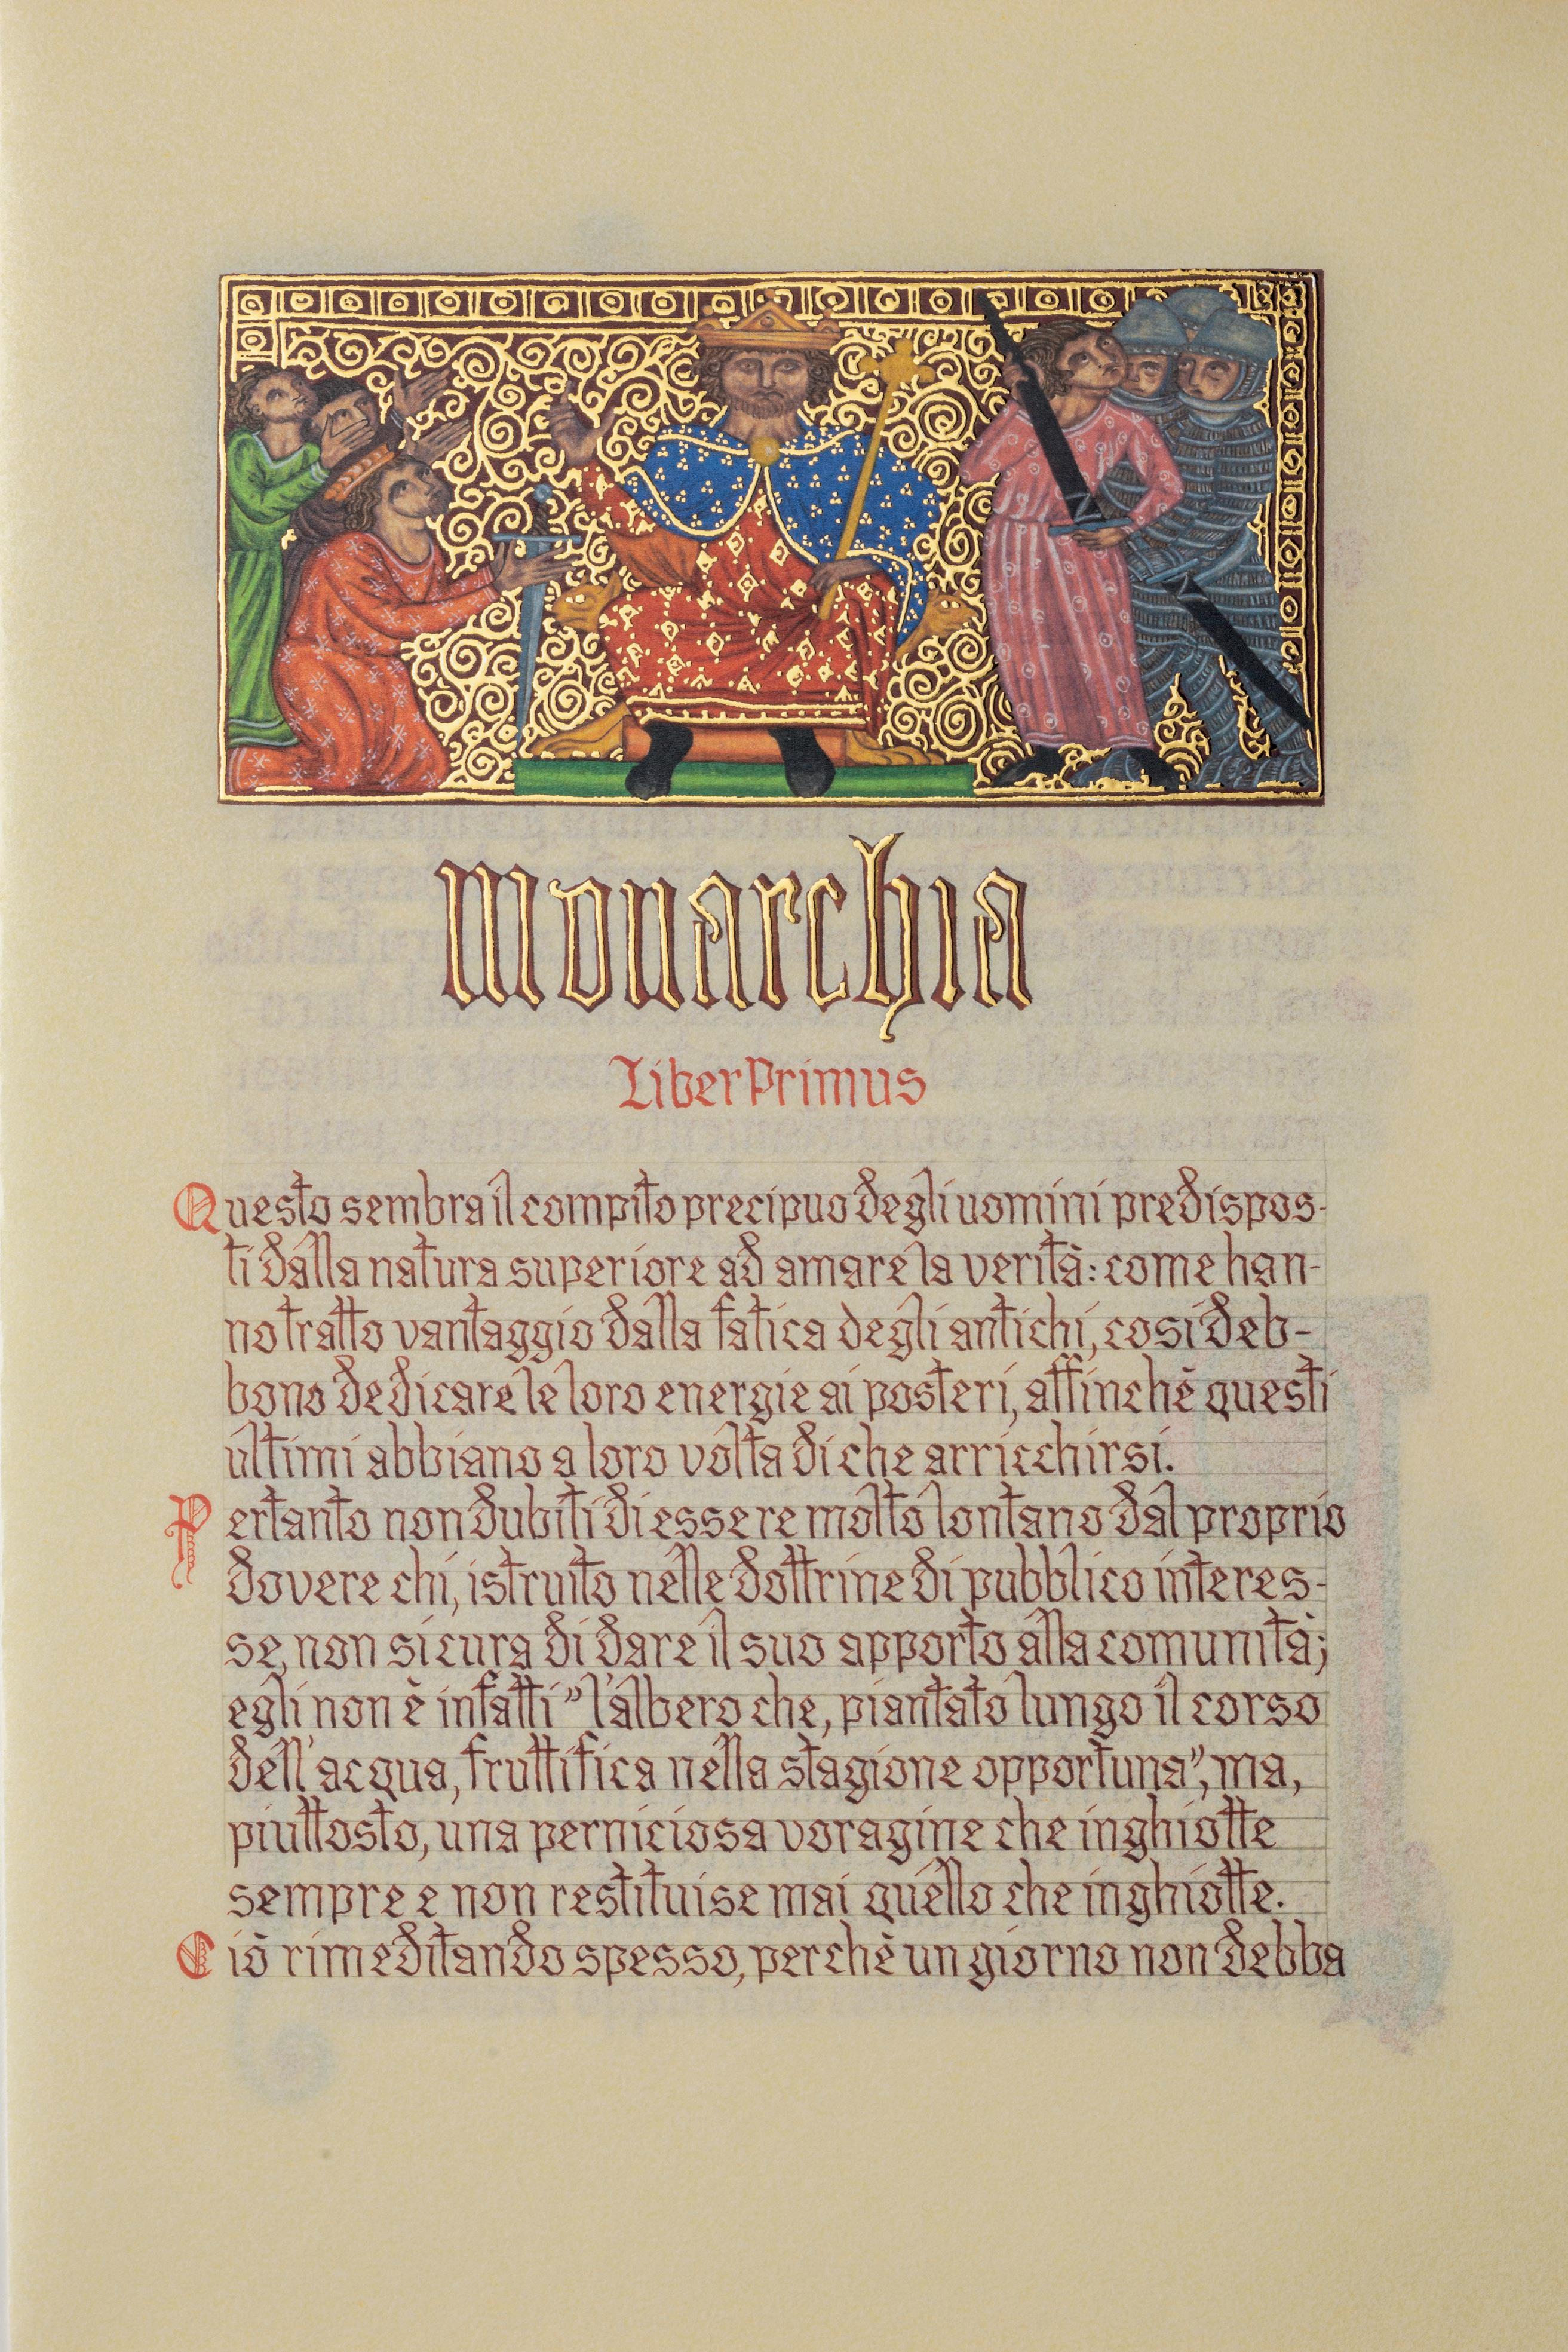 Monarchia
Liber Primus
Questo sembra il compito precipuo degli uomini predispos-
ti dalla natura superiore ad amare la verità: come han-
no tratto vantaggio dalla fatica degli antichi, così deb-
bono dedicare le loro energie ai posteri, affinchè questi
ultimi abbiano a loro volta di che arricchirsi.
Pertanto non dubiti di essere molto lontano dal proprio
dovere chi, istruito nelle dottrine di pubblico interes-
se, non si cura di dare il suo apporto alla comunità;
egli non è infatti "l'albero che, piantato lungo il corso
dell'acqua, fruttifica nella stagione opportuna", ma,
piuttosto, una perniciosa voragine che inghiotte
sempre e non restituise mai quello che inghiotte.
Ciò rimeditando spesso, perchè un giorno non debba